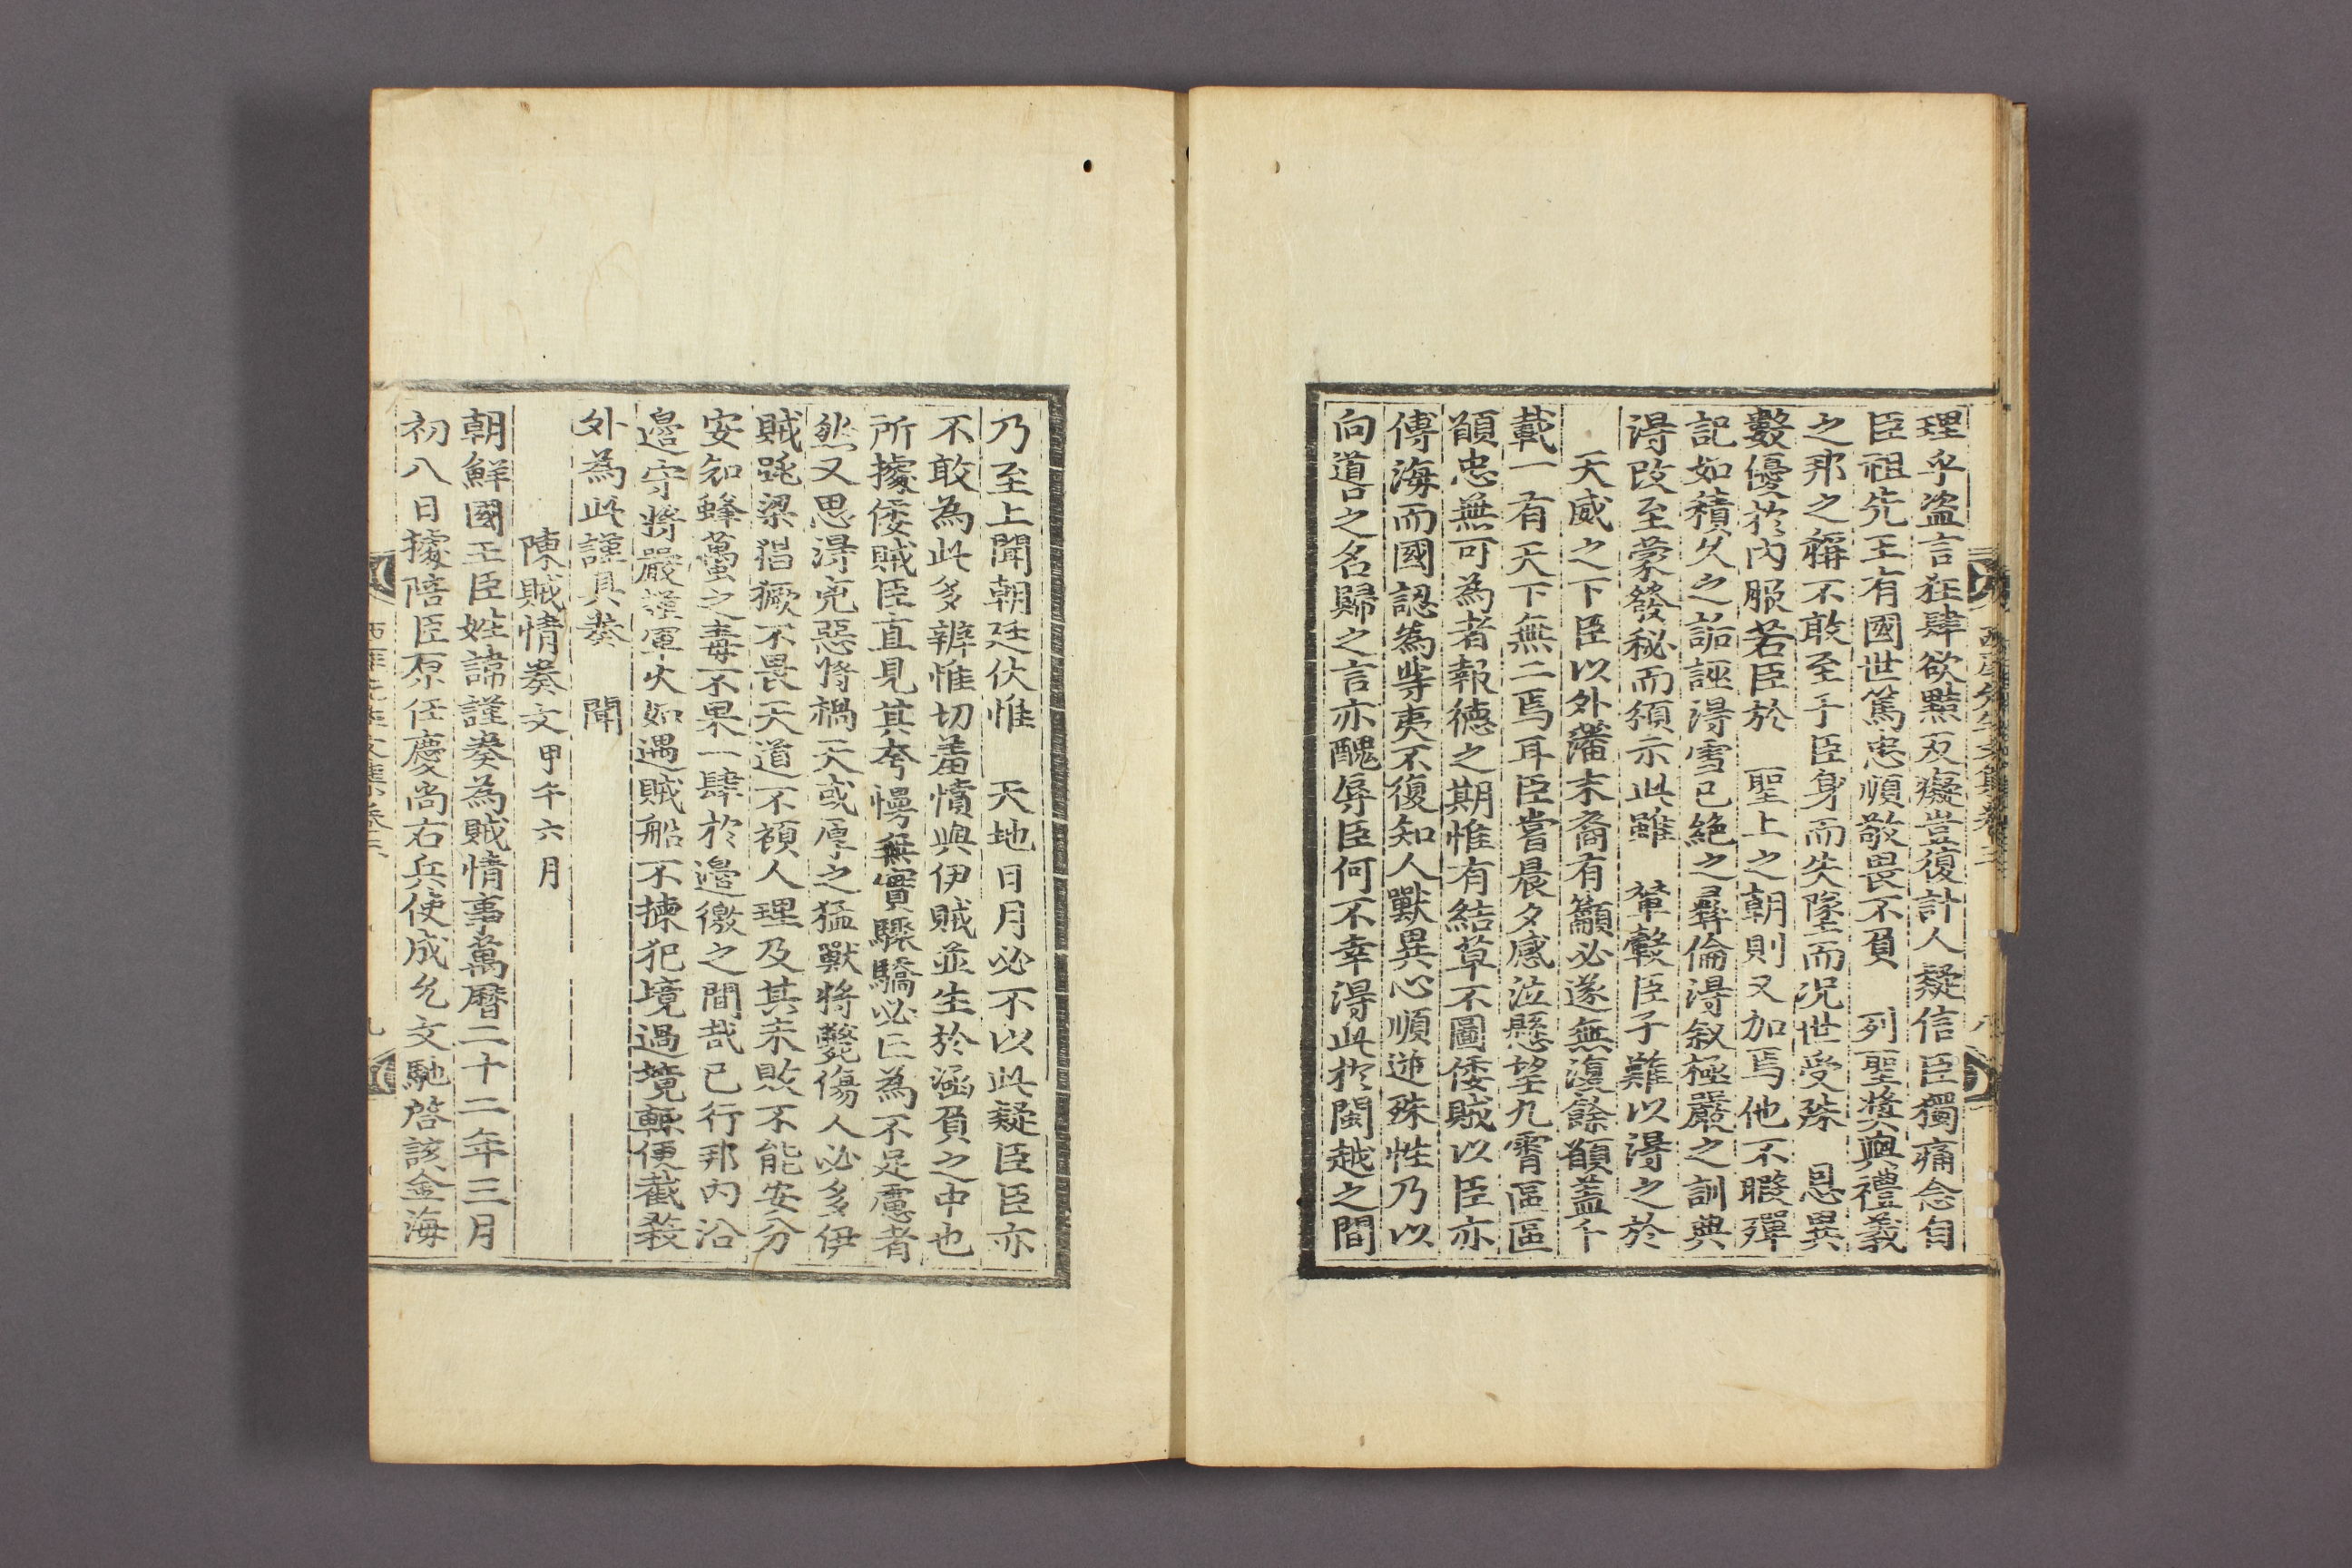 理乎盜言狂肆欲黠反癡豈復計人疑信臣獨痛念自
臣祖先王有國世篤忠順敬畏不貟　列聖奬與禮義
之邦之稱不敢至于臣身而失墜而况世受殊　恩異
數優於內服若臣於　聖上之朝則又加焉他不暇殫
記如積久之詬誣得雪已絶之彛倫得叙極嚴之訓典
得改至蒙發秘而須示此雖　輦轂臣子難以得之於
天威之下臣以外藩末裔有籲必遂無復餘顧盖千
載一有天下無二焉耳臣嘗晨夕感泣懸望九霄區區
顧忠無可為者報德之期惟有結草不圖倭賊以臣亦
傅海而國認為㫮夷不復知人獸異心順逆殊性乃以
向導之名歸之言亦醜辱臣何不幸得此於閩越之間
西厓先生文集卷之三
八
乃至上聞朝廷伏惟　天地日月必不以此疑臣臣亦
不敢為此多辨惟切羞憤與伊賊並生於涵貟之中也
所據倭賊臣直見其夸慢無實驟驕必亡為不足慮者
然又思得兇惡降禍天或厚之猛獸將斃傷人必多伊
賊跳梁猖獗不畏天道不湏人理及其未敗不能安分
安知蜂蠆之毒不果一肆於邉徼之間哉已行邦內沿
邉守將嚴謹軍火如遇賊船不揀犯境過境輒便截殺
外為此謹具奏　聞
陳賊情奏文甲午六月
朝鮮國王臣姓諱謹奏為賊情事萬曆二十二年三月
初八日據陪臣原任慶尚右兵使成允文馳啓該金海
九